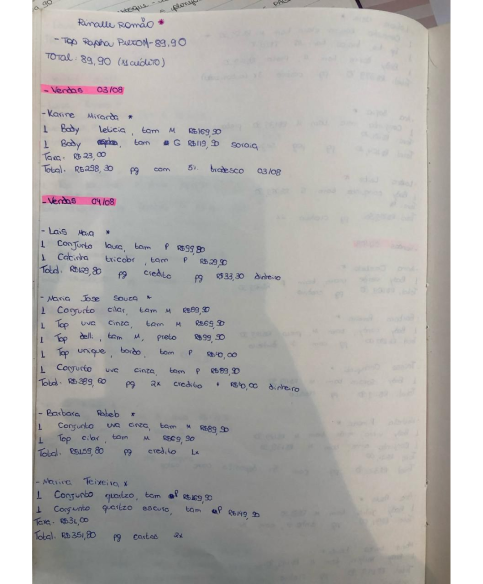 Rinalle Romão *
- Top Rapha Puzom - 89,90
Total: 89,90 (1x crédito)
- Vendas 03/08
- Karine Miranda *
1 Body Leticia, tam M R$169,90
1 Body tam G R$119,90 Soraia
Taxa: R$23,00
Total: R$298,30 pg com Si bradesco 03/08
- Vendas 04/08
- Lais Maia *
1 Conjunto laura, tam P R$99,90
1 Calcinha tricolor, tam P R$29,90
Total: R$129,80 pg credito pg R$33,30 dinheiro
- Maria Jose Souza *
1 Conjunto cilar, tam M R$89,90
1 Top uva cinza, tam M R$69,90
1 Top dell, tam M, preto R$99,90
1 Top unique, bordo, tam P R$40,00
1 Conjunto uva cinza, tam P R$89,90
Total: R$389,60 pg 2x credito + R$40,00 dinheiro
- Barbara Rabelo *
1 Conjunto uva cinza, tam M R$89,90
1 Top cilar, tam M R$69,90
Total: R$159,80 pg credito 1x
- Marina Teixeira *
1 Conjunto quartzo, tam P R$169,90
1 Conjunto quartzo escuro, tam P R$149,90
Taxa: R$32,00
Total: R$351,80 pg cartao 2x